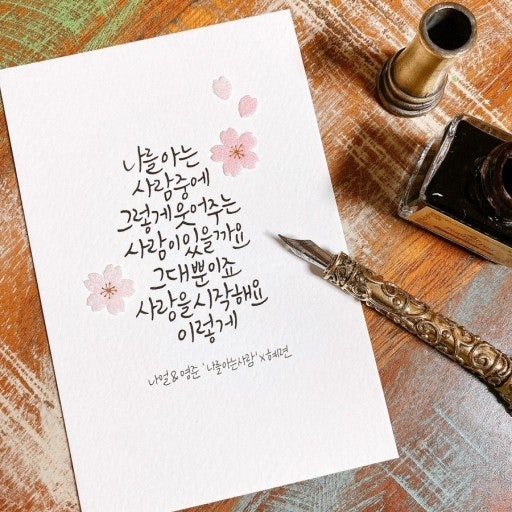 나를아는
사람중에
그렇게웃어주는
사람이있을까요
그대뿐이죠
사랑을시작해요
이렇게
나얼&영준 '나를아는사람' x혜면